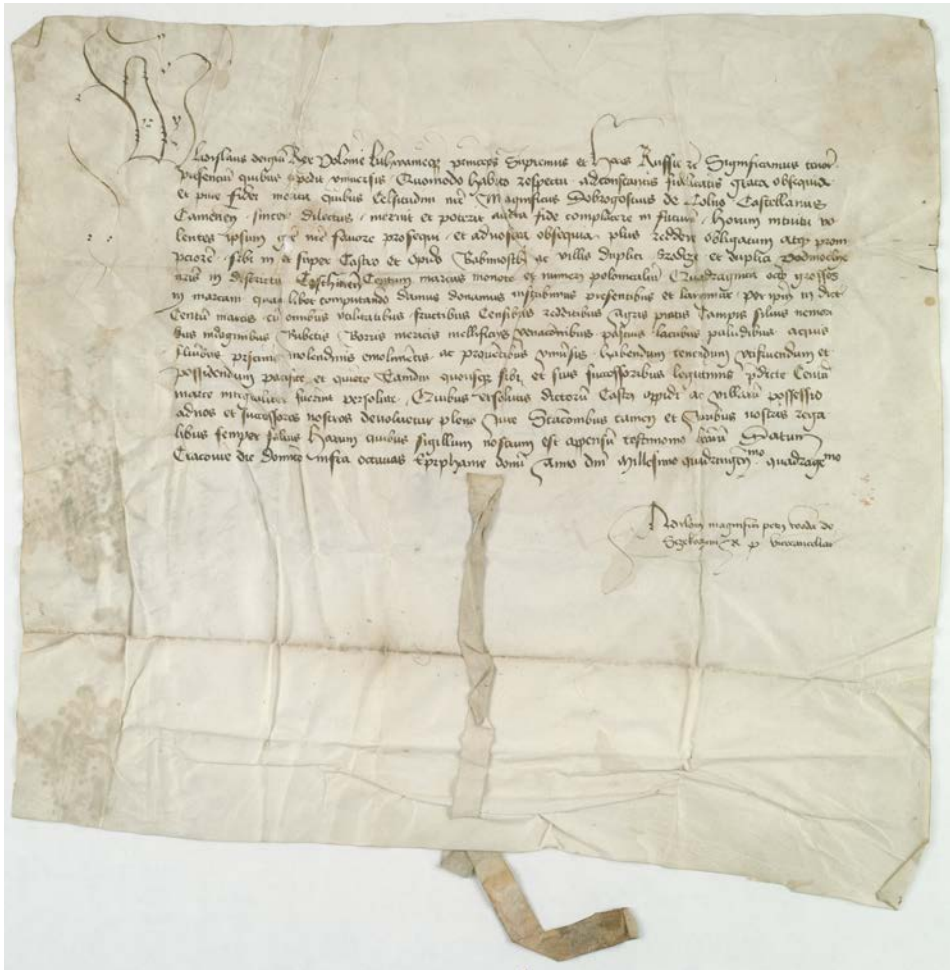 Wladislaus dei gra Rex Polonie Lithwanieqz princeps Supremus et heres Russie rc Significamus tenore
presenciu quibus expedit vniuersis Quomodo habito respectu ad constantis fidelitatis grata obsequia
et pure fidei merita quibus Celsitudini nre Magnificus Dobrogostius de Colno Castellanus
Camenen sincere dilectus meruit et poterit aucta fide complacere in futuru Horum intuitu vo
lentes ipsum gre nre fauore prosequi et ad nostra obsequia plus reddere obligatum atqz prom
pciore sibi in et super Castro et opido Babimosth ac villis duplici Grodzisc et duplici
in districtu Costhinen Centum marcas monete et numeri polonicalis Quadraginta octo grossos
in marcam quamlibet computando damus donamus inscribimus presentibus et largimur per ipm in dict
Centu marcis cu omnibus vtilitatibus fructibus Censibus redditibus agris pratis Campis siluis nemori
bus indaginibus Rubetis Borris mericis mellificiis venacionibus pascuis lacubus paludibus aquis
fluuiis piscinis molendinis emolimentis ac prouentibus vniuersis habendum tenendum vtifruendum et
possidendum pacifice et quiete Tamdiu quousqz sibi et suis successoribus legittimis pdicte Centu
marce integraliter fuerint persolute Quibus exsolutis dictorum Castri oppidi ac villaru possessio
ad nos et successores nostros deuoluetur pleno Jure Stacionibus tamen et Juribus nostris rega
libus semper saluis Harum quibus sigillum nostrum est appensum testimonio lraru Datum
Cracouie die dominico infra octauas Epiphanie domini Anno dni Millesimo quadringentesimo quadragesimo
Ad relacionem magnifici petri woda de
Sczekoczini R P vicecancellarii